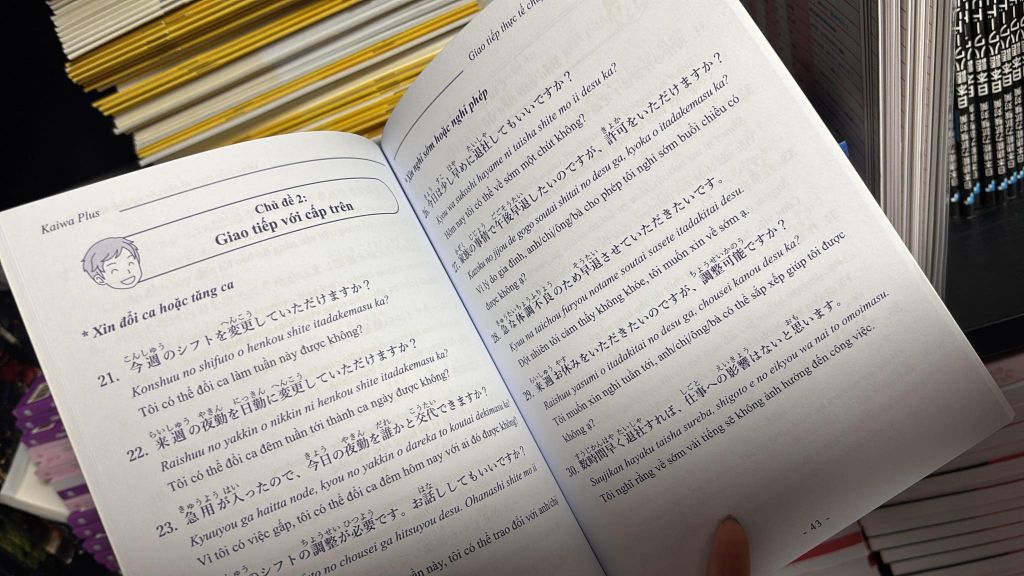 Kaiwa Plus
Chủ đề 2:
Giao tiếp với cấp trên
* Xin đổi ca hoặc tăng ca
こんしゅう へんこう
21. 今週のシフトを変更していただけますか？
Konshuu no shifuto o henkou shite itadakemasu ka?
Tôi có thể đổi ca làm tuần này được không?
らいしゅう やきん にっきん へんこう
22. 来週の夜勤を日勤に変更していただけますか？
Raishuu no yakkin o nikkin ni henkou shite itadakemasu ka?
Tôi có thể đổi ca đêm tuần tới thành ca ngày được không?
きゅうよう はい きょう やきん だれ こうたい
23. 急用が入ったので、今日の夜勤を誰かと交代できますか？
Kyuuyou ga haitta node, kyou no yakkin o dareka to koutai dekimasu ka?
Vì tôi có việc gấp, tôi có thể đổi ca đêm hôm nay với ai đó được không?
ちょうせい ひつよう はな
シフトの調整が必要です。お話ししてもいいですか？
no chousei ga hitsuyou desu. Ohanashi shite mo ii
này, tôi có thể trao đổi với anh/chị
Giao tiếp thực tế
nghỉ sớm hoặc nghỉ phép
きょう すこ はや たいしゃ
26. 今日は少し早めに退社してもいいですか？
Kyou wa sukoshi hayame ni taisha shite mo ii desu ka?
Hôm nay tôi có thể về sớm một chút không?
かぞく じじょう ごごそうたい きょか
27. 家族の事情で午後早退したいのですが、許可をいただけますか？
Kazoku no jijou de gogo soutai shitai no desu ga, kyoka o itadakemasu ka?
Vì lý do gia đình, anh/chị/ông/bà cho phép tôi nghỉ sớm buổi chiều có
được không ạ?
きゅう たいちょうふりょう そうたい
28. 急な体調不良のため早退させていただきたいです。
Kyuu na taichou furyou notame soutai sasete itadakitai desu.
Đột nhiên tôi cảm thấy không khỏe, tôi muốn xin về sớm ạ.
らいしゅう やす ちょうせいかのう
29. 来週お休みをいただきたいのですが、調整可能ですか？
Raishuu yasumi o itadakitai no desu ga, chousei kanou desu ka?
Tôi muốn xin nghỉ tuần tới, anh/chị/ông/bà có thể sắp xếp giúp tôi được
không ạ?
すうじかんはや たいしゃ しごと えいきょう おも
30. 数時間早く退社すれば、仕事への影響はないと思います。
Suujikan hayaku taisha sureba, shigoto e no eikyou wa nai to omoimasu.
Tôi nghĩ rằng về sớm vài tiếng sẽ không ảnh hưởng đến công việc.
- 43 -